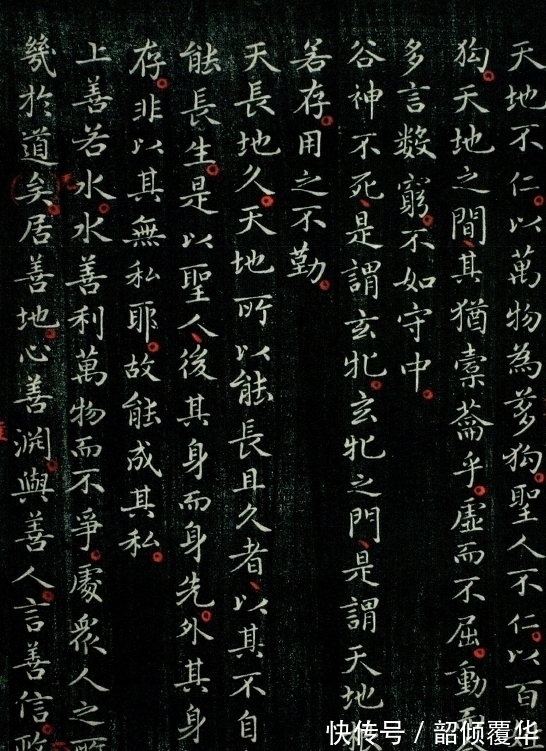 天地不仁以萬物為芻狗聖人不仁以百
狗天地之間其猶橐籥乎虛而不屈動而
多言數窮不如守中
谷神不死是謂玄牝玄牝之門是謂天地根
若存用之不勤
天長地久天地所以能長且久者以其不自
能長生是以聖人後其身而身先外其身
存非以其無私耶故能成其私
上善若水水善利萬物而不爭處衆人之所
幾於道矣居善地心善淵與善人言善信政
快传号/韶倾覆华